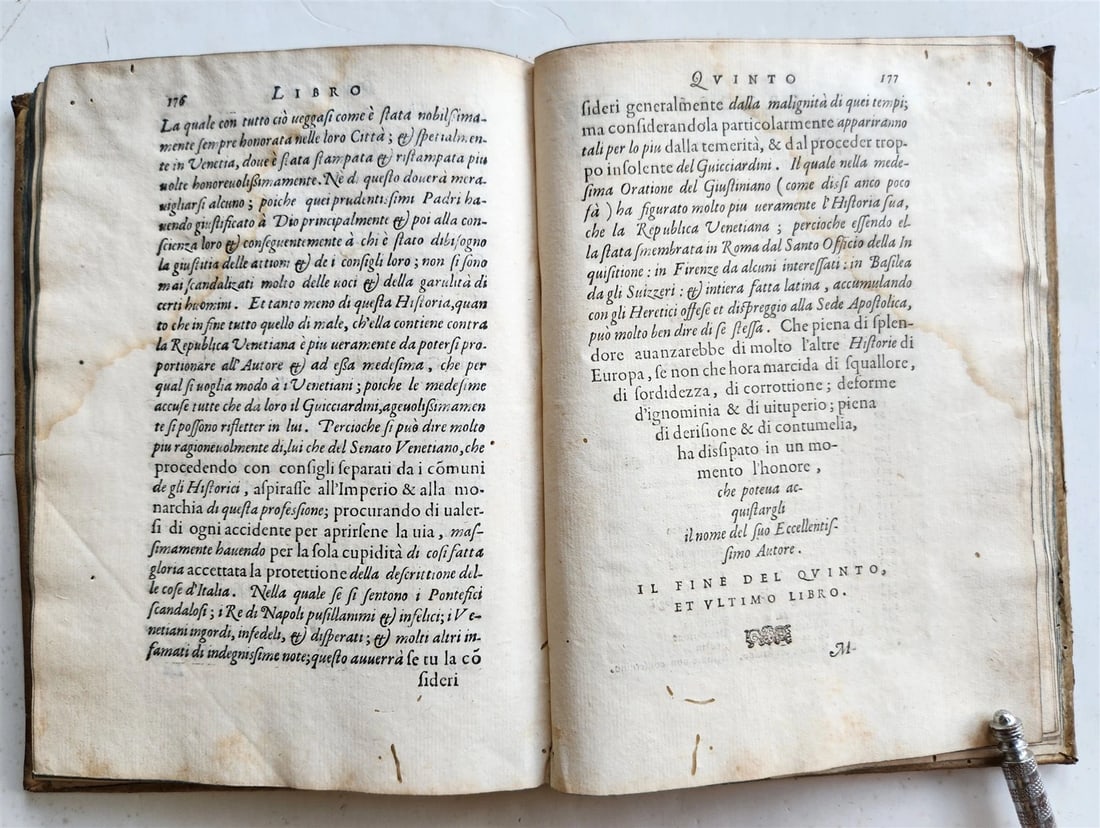 176 LIBRO
La quale con tutto ciò ueggasi come è stata nobilſsima-
mente sempre honorata nelle loro Città; & ſpetialmen-
te in Venetia, doue è ſtata ſtampata & riſtampata piu
uolte honoreuoliſsimamente. Ne di queſto douerà mera-
uigliarſi alcuno; poiche quei prudentiſsimi Padri ha-
uendo giuſtificato à Dio principalmente & poi alla con-
ſcienza loro & conſeguentemente à chi è ſtato dibiſogno
la giuſtitia delle attioni & de i conſigli loro; non ſi ſono
mai ſcandalizati molto delle uoci & della garulità di
certi huomini. Et tanto meno di queſta Hiſtoria, quan
to che in fine tutto quello di male, ch'ella contiene contra
la Republica Venetiana è piu ueramente da poterſi pro-
portionare all'Autore & ad eſſa medeſima, che per
qual ſi uoglia modo à i Venetiani; poiche le medeſime
accuſe tutte che da loro il Guicciardini, ageuoliſsimamen
te ſi poſſono rifletter in lui. Percioche ſi può dire molto
piu ragioneuolmente di lui che del Senato Venetiano, che
procedendo con conſigli ſeparati da i cõmuni
de gli Hiſtorici, aſpiraſſe all'Imperio & alla mo-
narchia di queſta profeſſione; procurando di ualer-
ſi di ogni accidente per aprirſene la uia, maſ-
ſimamente hauendo per la ſola cupidità di coſi fatta
gloria accettata la protettione della deſcrittione del-
le coſe d'Italia. Nella quale ſe ſi ſentono i Pontefici
ſcandaloſi; i Re di Napoli puſillanimi & infelici; i Ve-
netiani ingordi, infedeli, & diſperati; & molti altri in-
famati di indegniſsime note; queſto auuerrà ſe tu la cõ
ſideri
QVINTO 177
ſideri generalmente dalla malignità di quei tempi;
ma conſiderandola particolarmente appariranno
tali per lo piu dalla temerità, & dal proceder trop-
po inſolente del Guicciardini. Il quale nella mede-
ſima Oratione del Giuſtiniano (come diſsi anco poco
fà) ha figurato molto piu ueramente l'Hiſtoria ſua,
che la Republica Venetiana; percioche eſſendo el-
la ſtata ſmembrata in Roma dal Santo Officio della In
quiſitione: in Firenze da alcuni intereſſati: in Baſilea
da gli Suizzeri: & intiera fatta latina, accumulando
con gli Heretici offeſe et diſpreggio alla Sede Apoſtolica,
può molto ben dire di ſè ſteſſa. Che piena di ſplen-
dore auanzarebbe di molto l'altre Hiſtorie di
Europa, ſe non che hora marcida di ſquallore,
di ſordidezza, di corrottione; deforme
d'ignominia & di uituperio; piena
di deriſione & di contumelia,
ha diſsipato in un mo-
mento l'honore,
che poteua ac-
quiſtargli
il nome del ſuo Eccellentiſ-
ſimo Autore.
IL FINE DEL QVINTO,
ET VLTIMO LIBRO.
M